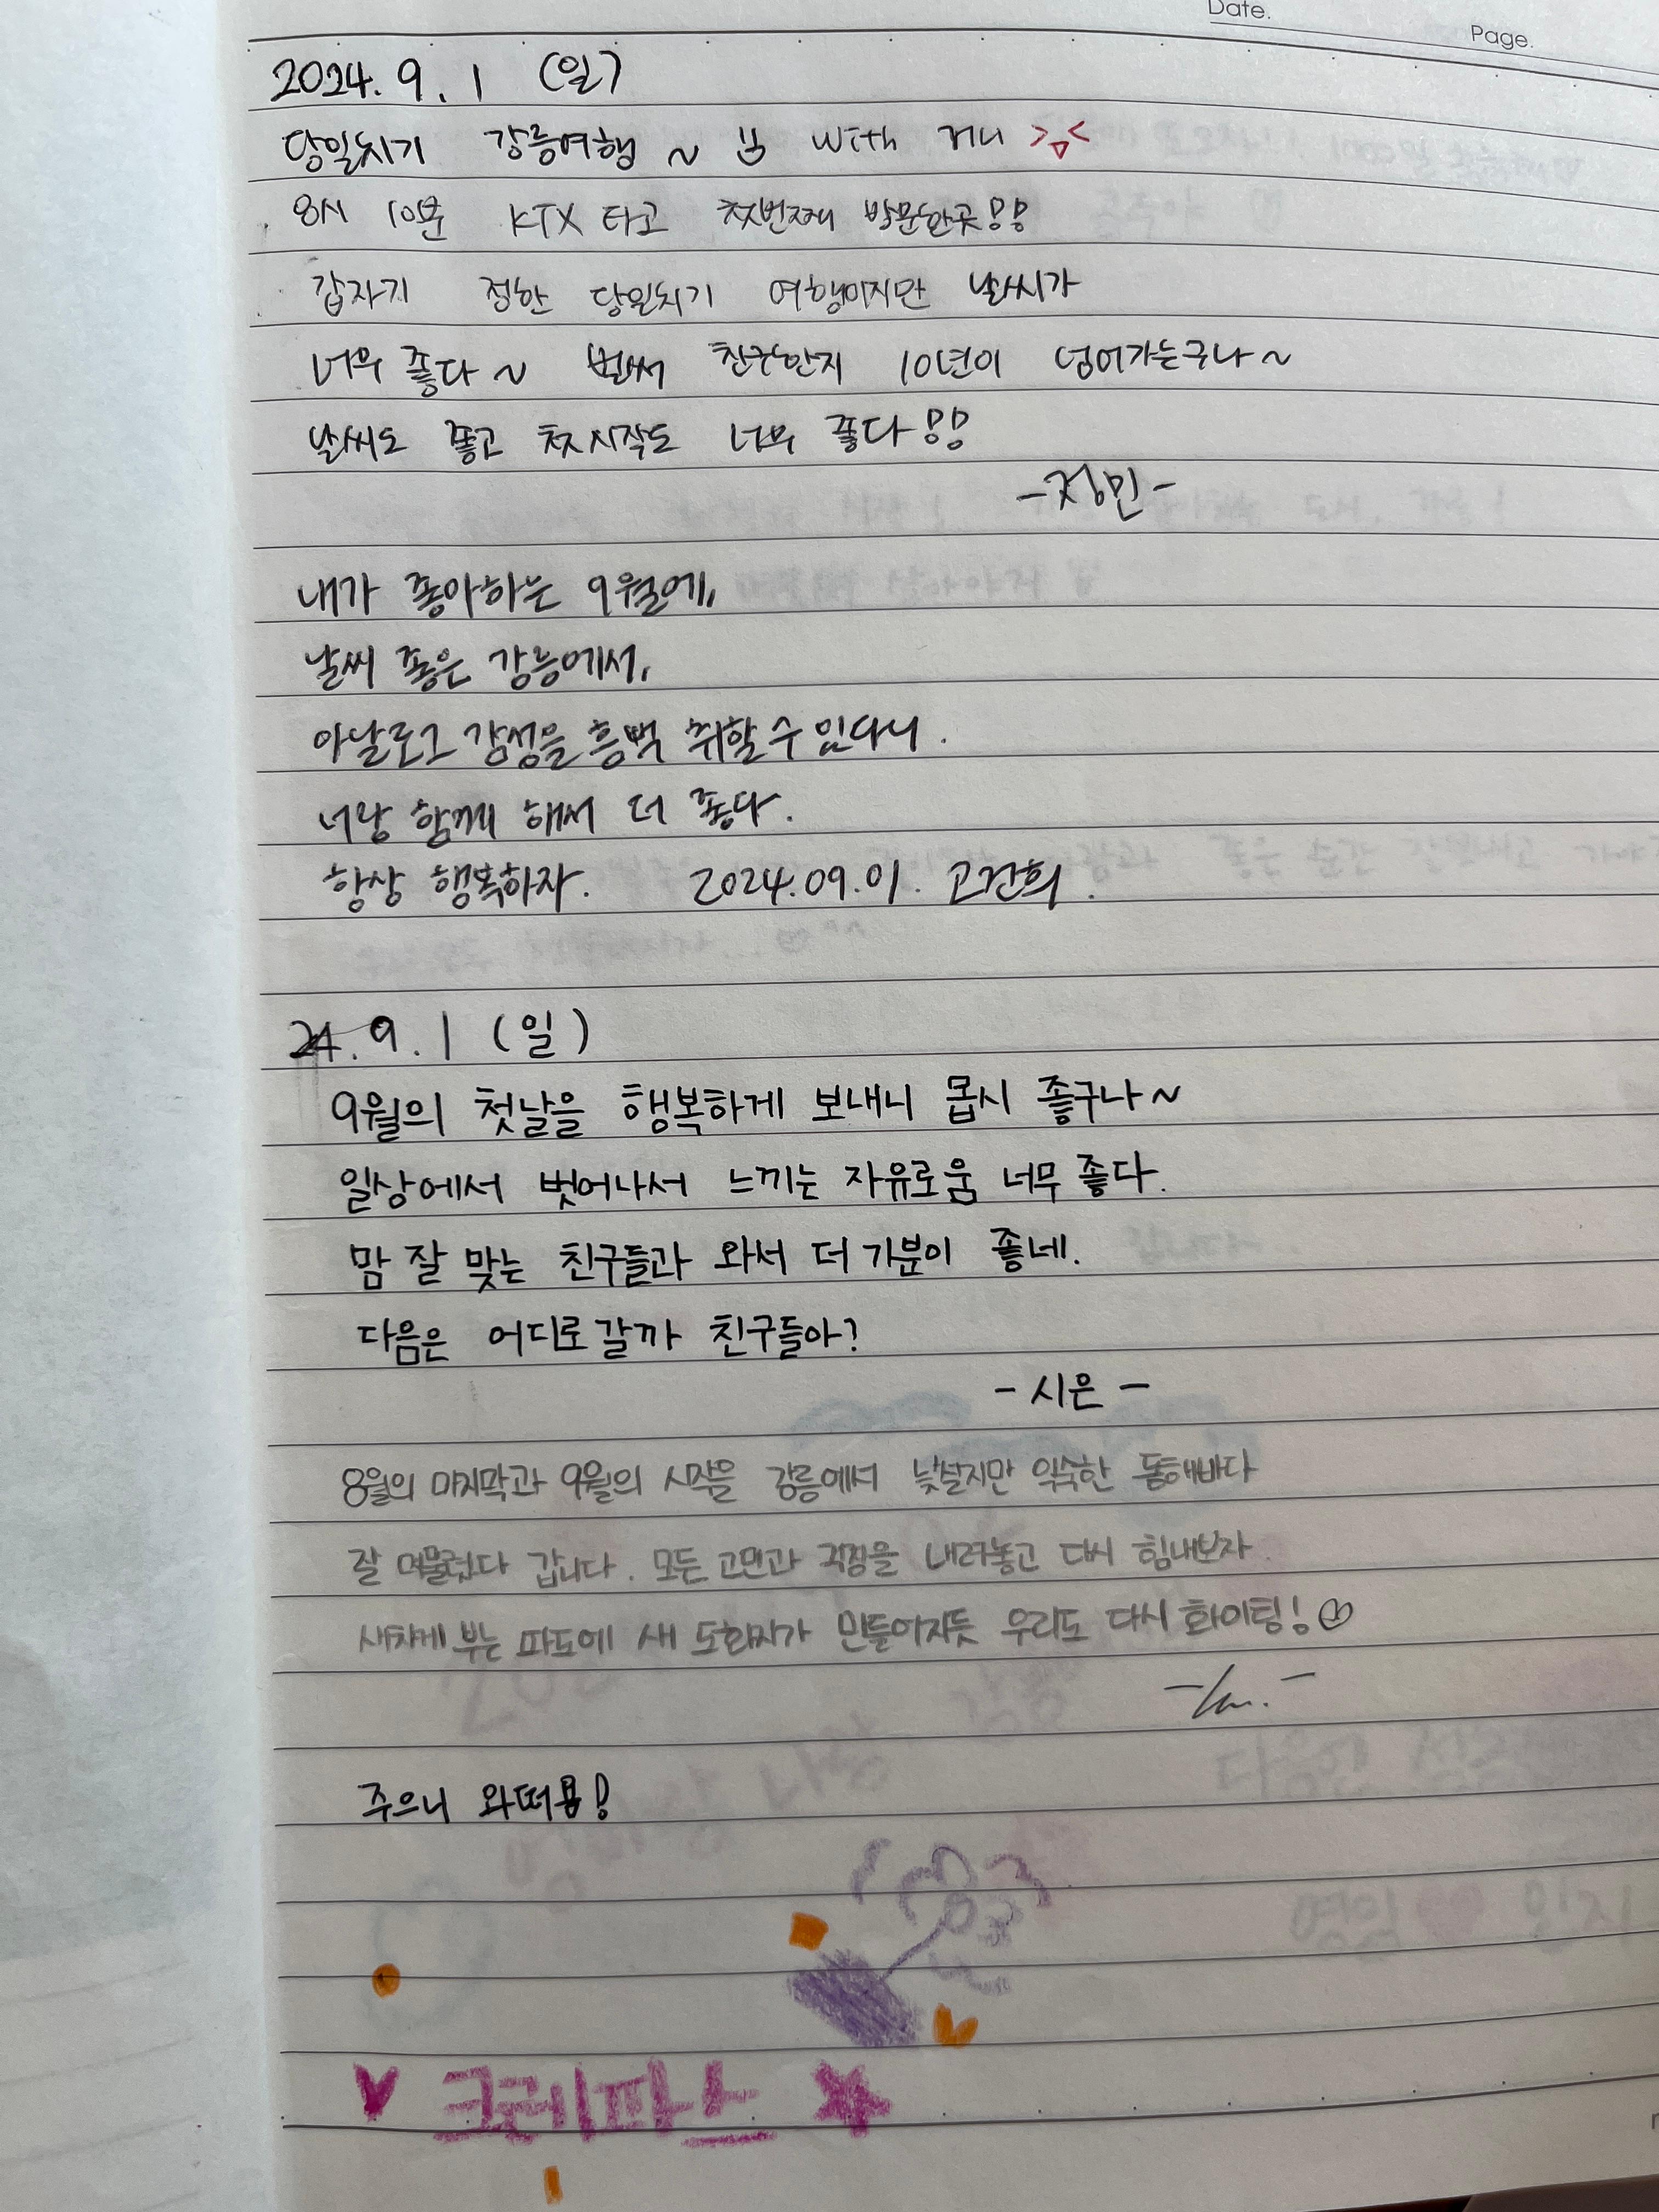 Date.
Page.
2024. 9. 1 (일)
당일치기 강릉여행 ~ with 거니 >.<
8시 10분 KTX 타고 첫번째 방문한곳!!
갑자기 정한 당일치기 여행이지만 날씨가
너무 좋다~ 벌써 친구한지 10년이 넘어가는구나~
날씨도 좋고 첫시작도 너무 좋다!!
-정민-
내가 좋아하는 9월에,
날씨 좋은 강릉에서,
아날로그 감성을 흠뻑 취할 수 있다니.
너랑 함께 해서 더 좋다.
항상 행복하자. 2024.09.01. 고건희.
24. 9. 1 (일)
9월의 첫날을 행복하게 보내니 몹시 좋구나~
일상에서 벗어나서 느끼는 자유로움 너무 좋다.
맘 잘 맞는 친구들과 와서 더 기분이 좋네.
다음은 어디로 갈까 친구들아?
- 시은 -
8월의 마지막과 9월의 시작을 강릉에서 낯설지만 익숙한 동해바다
잘 머물렀다 갑니다. 모든 고민과 걱정을 내려놓고 다시 힘내보자
세차게 부는 파도에 새 도화지가 만들어지듯 우리도 다시 화이팅!
주으니 와떠욤!
크레파스